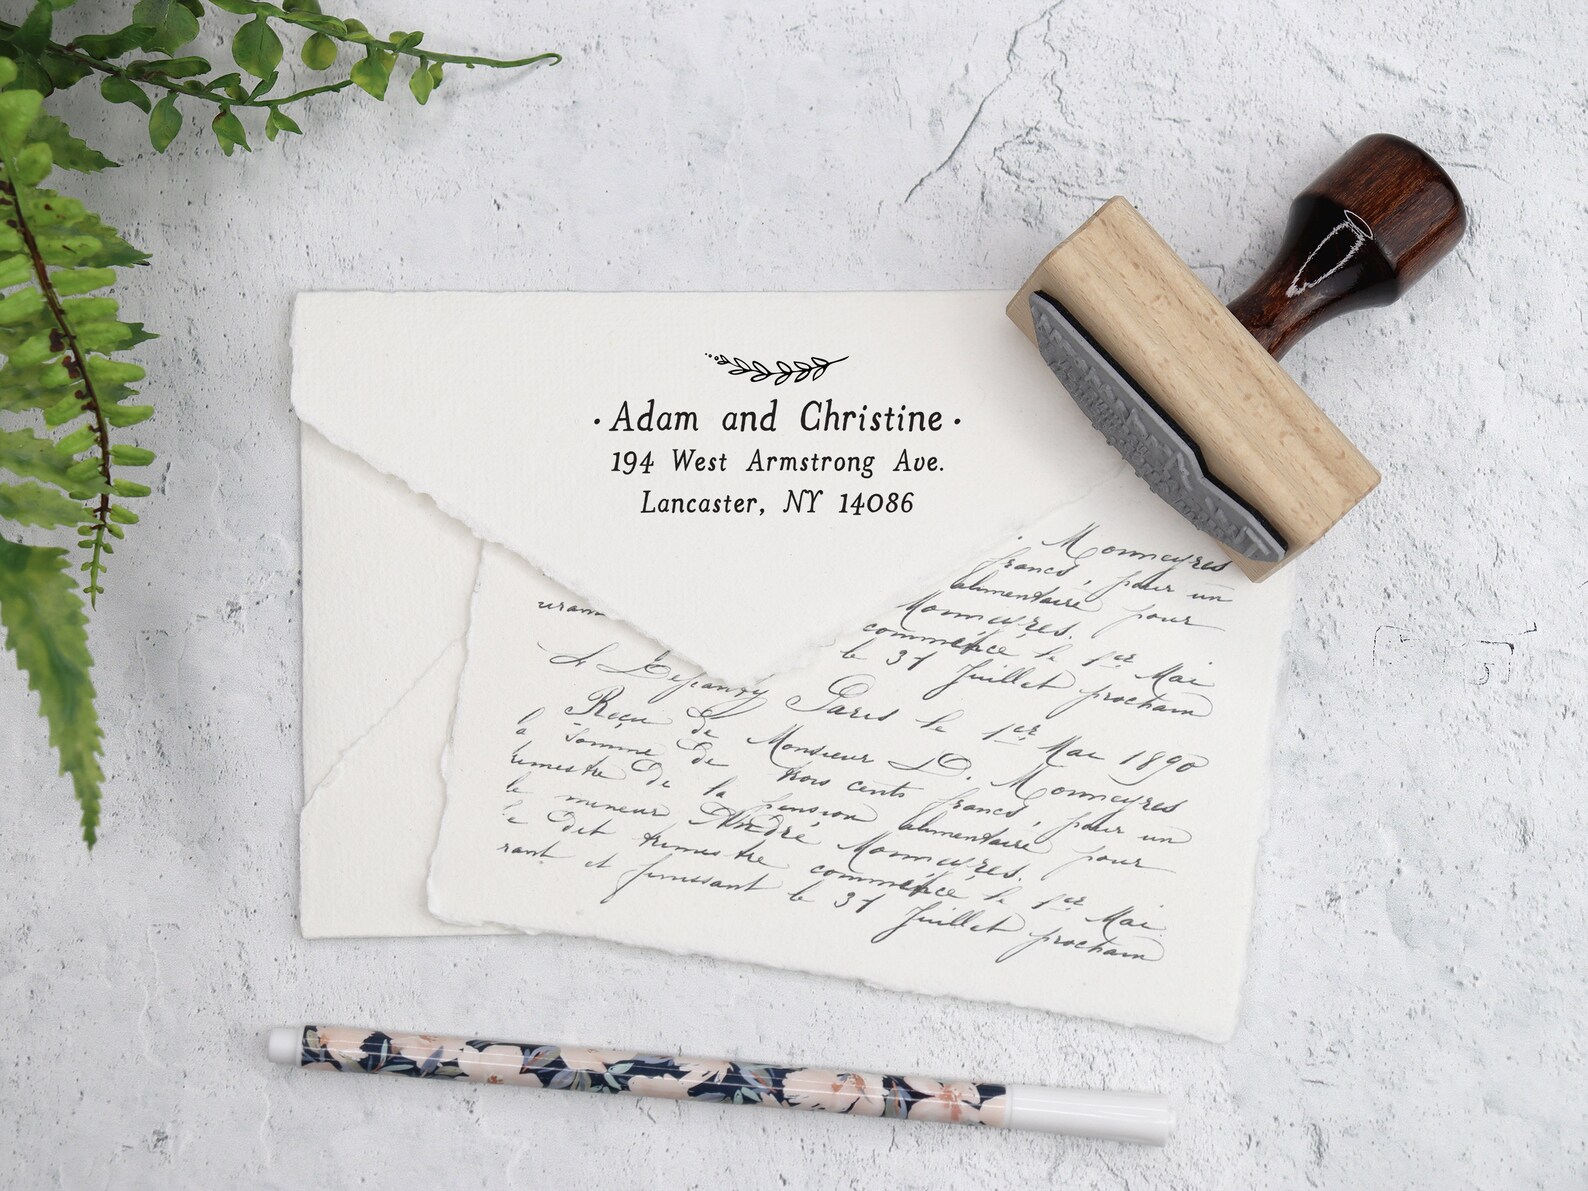 · Adam and Christine ·
194 West Armstrong Ave.
Lancaster, NY 14086
Monneyres
francs, pour un
alimentaire pour
Monneyres.
commence le 1er Mai
le 31 Juillet prochain
Paris le 1er Mai 1890
Reçu de Monsieur D. Monneyres
la somme de trois cents francs, pour un
trimestre de la pension alimentaire pour
le mineur André Monneyres.
Le dit trimestre commence le 1er Mai
rant et finissant le 31 Juillet prochain